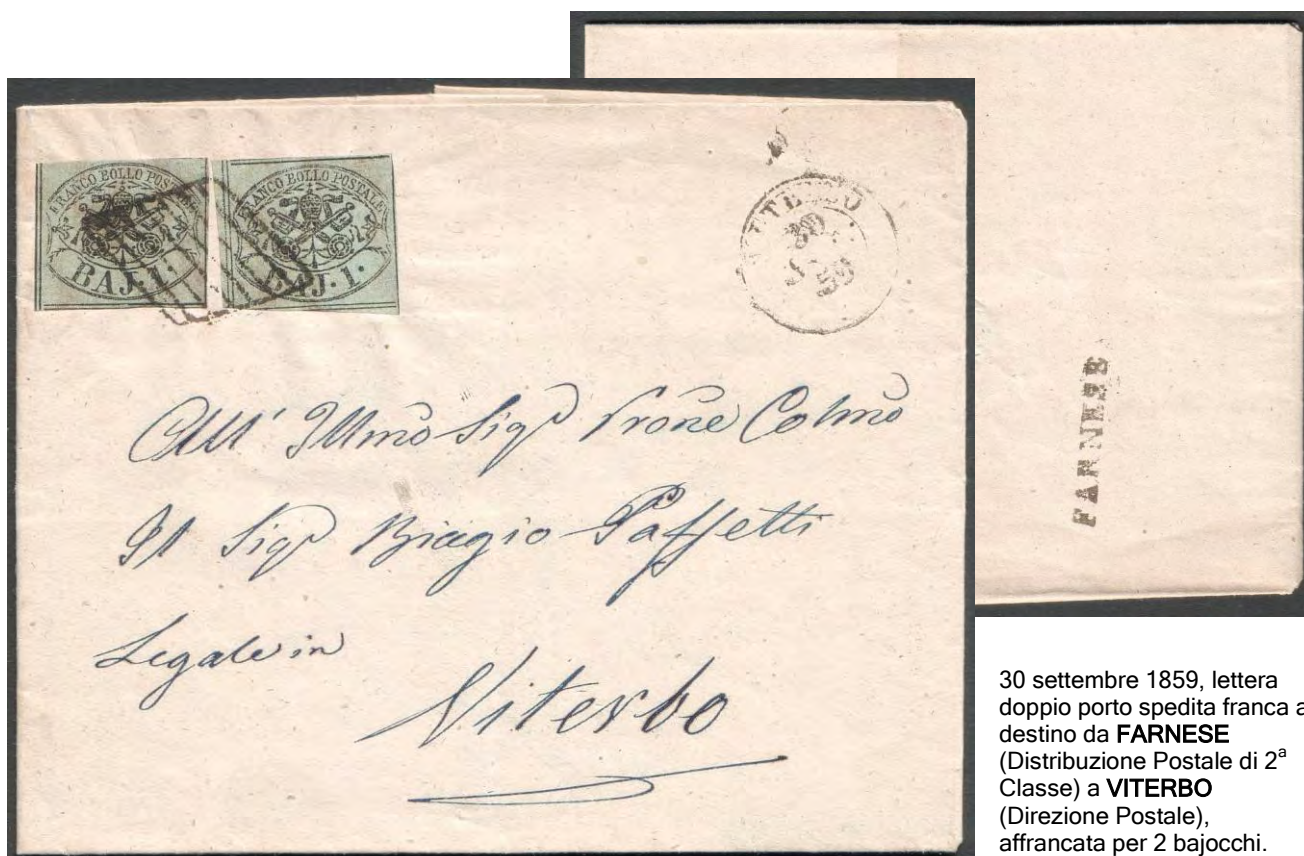 FRANCO BOLLO POSTALE
BAJ. 1.
FRANCO BOLLO POSTALE
BAJ. 1.
VITERBO
30
59
All' Illmo Sigr Prone Colmo
Il Sigr Biagio Paffetti
Legale in
Viterbo
FARNESE
30 settembre 1859, lettera
doppio porto spedita franca a
destino da FARNESE
(Distribuzione Postale di 2ª
Classe) a VITERBO
(Direzione Postale),
affrancata per 2 bajocchi.